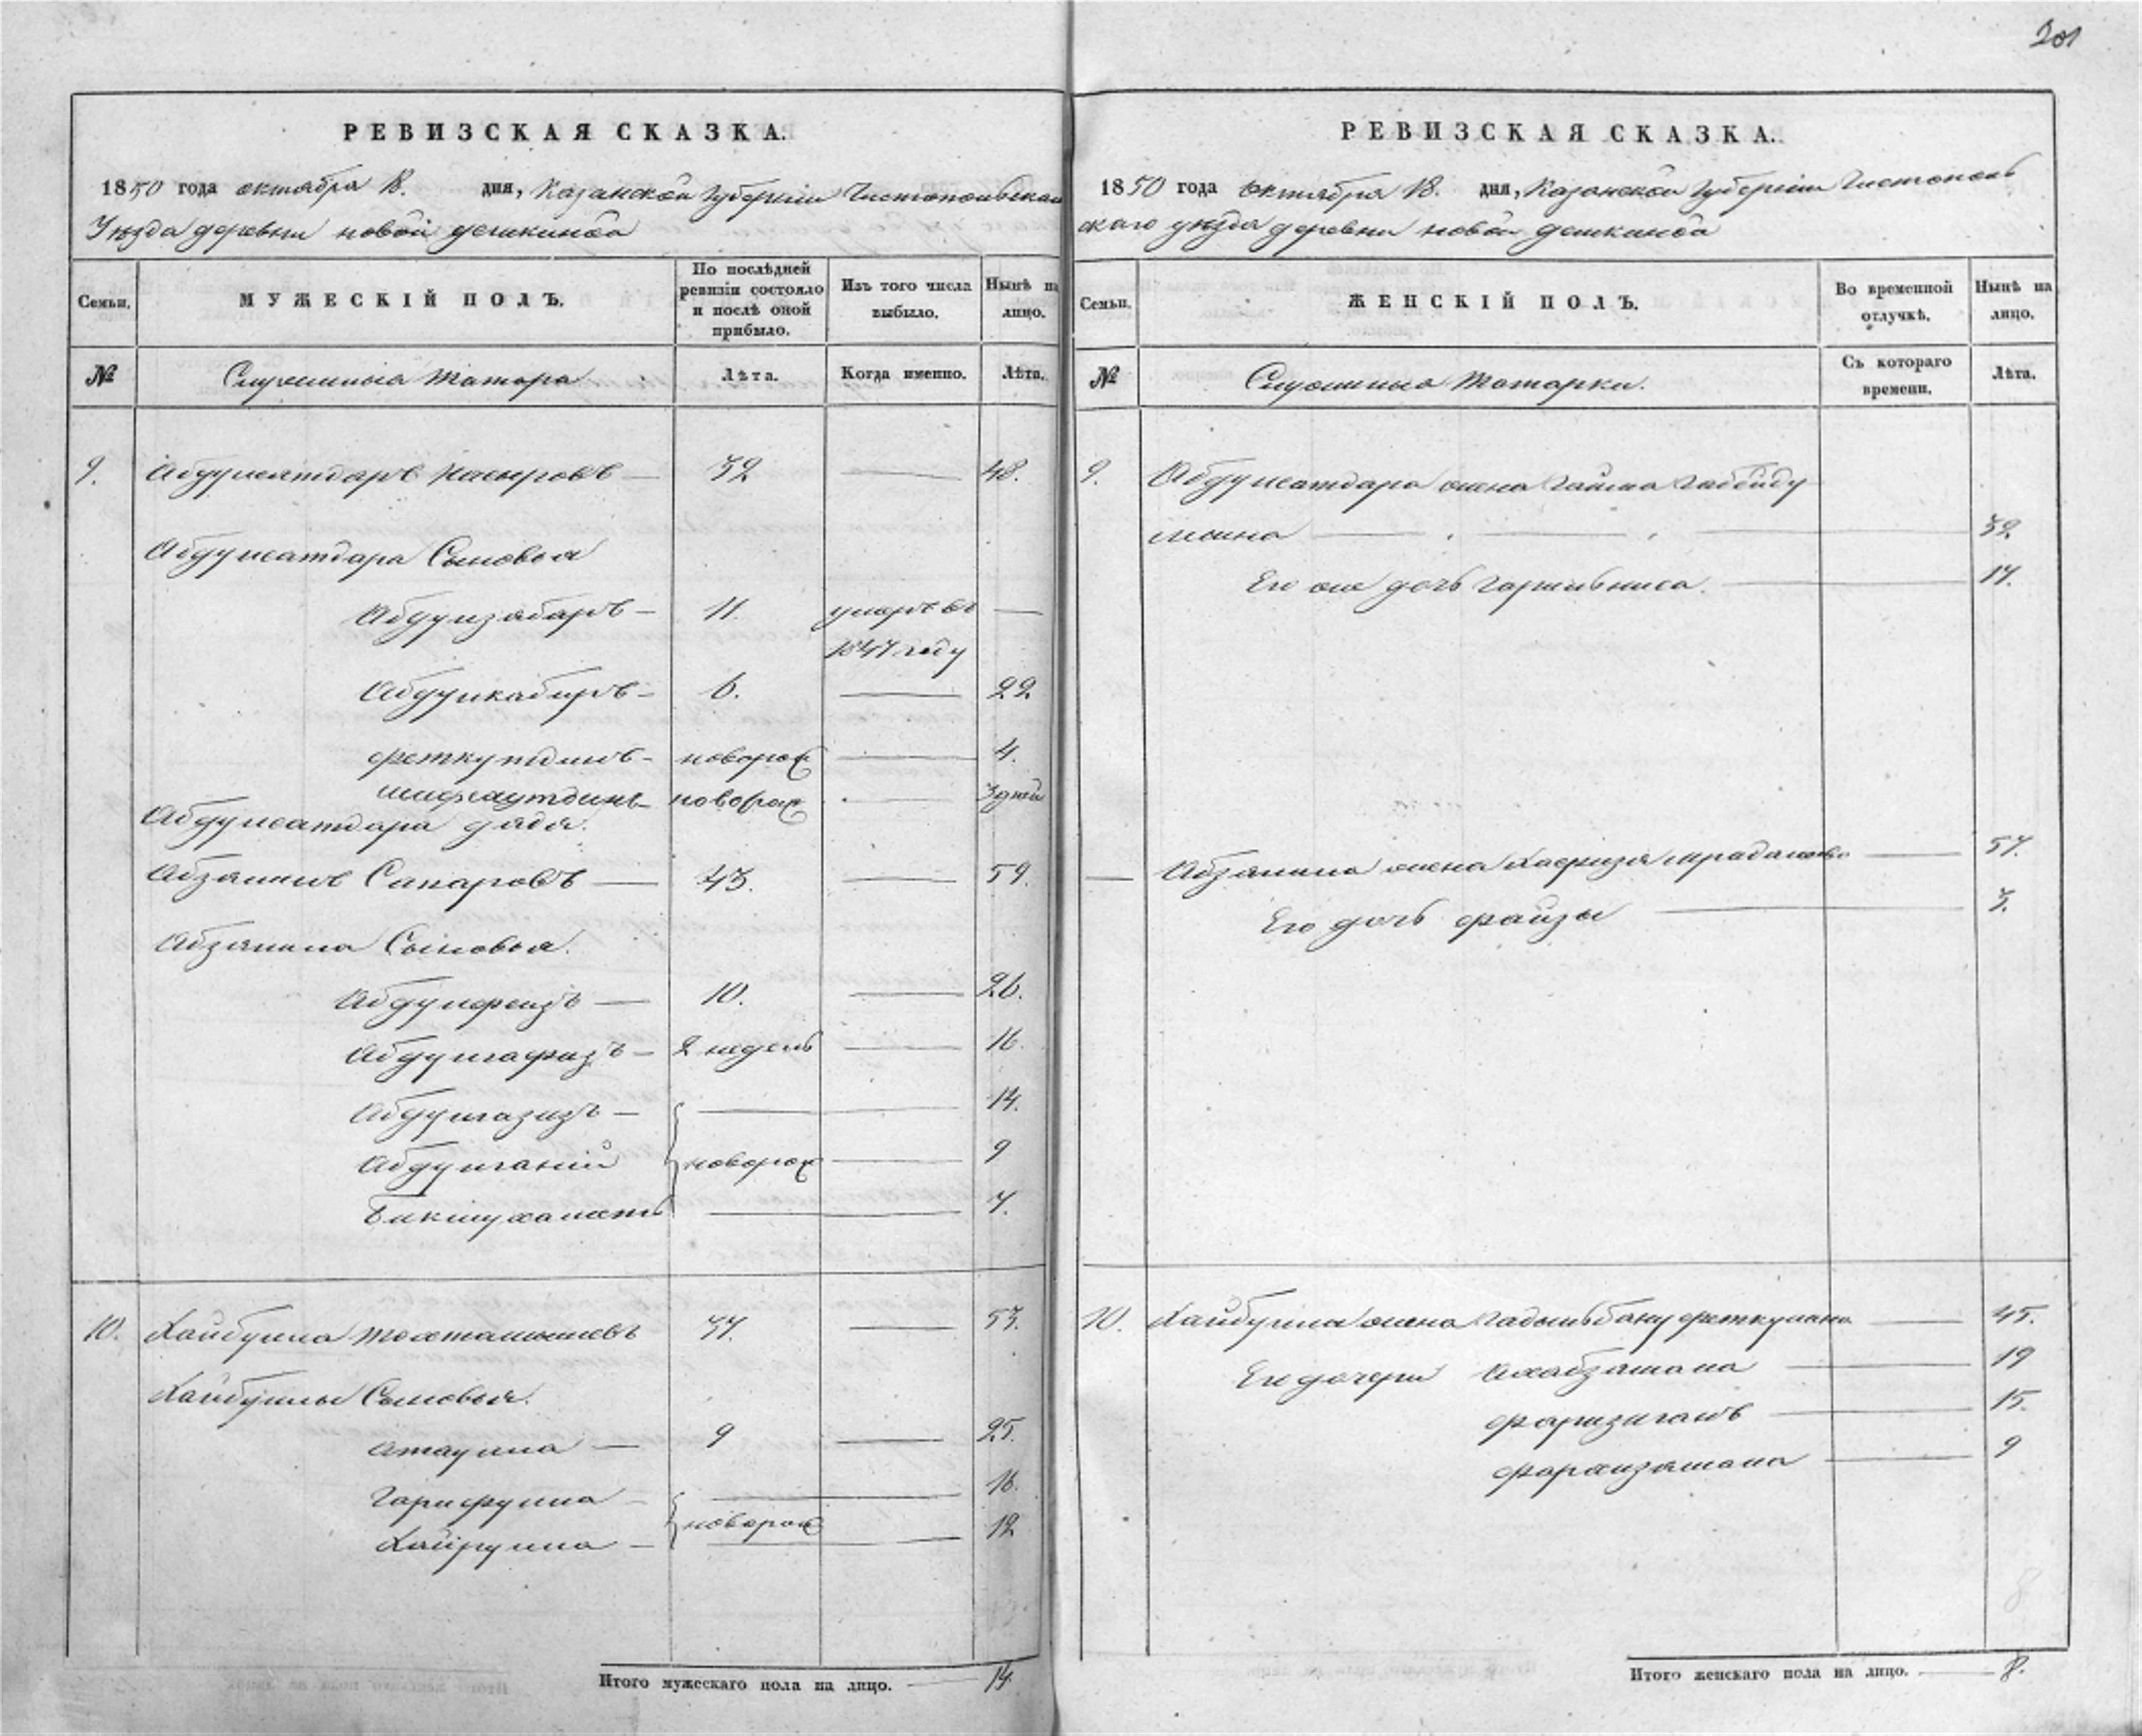 201
РЕВИЗСКАЯ СКАЗКА.
1850 года октября 18. дня, Казанской Губернии Чистопольскаго
Уѣзда деревни новой демкиной
Семьи.
МУЖЕСКІЙ ПОЛЪ.
По послѣдней ревизіи состояло и послѣ оной прибыло.
Изъ того числа выбыло.
Нынѣ на лицо.
№
Служилыя татара
Лѣта.
Когда именно.
Лѣта.
9. Абдулсаттаръ Насыровъ — 32 — 48.
Абдулсаттара Сыновья
Абдулзябаръ — 11. умеръ въ —
1847 году
Абдулкабиръ — 6. — 22
Феткулдинъ — новорож — 4.
новорож — 3 дней
Абдулсаттара дядя.
Абзялилъ Сапаровъ — 43. — 59.
Абзялила Сыновья.
Абдулфеизъ — 10. — 26.
Абдулгафизъ — 2 недель — 16.
Абдулгазизъ — — 14.
Абдулганий новорож — 9
Бикмухаметь — 7.
10. Хайбулла Тохтамышевъ 37. — 53.
Хайбуллы Сыновья.
Атаулла — 9 — 25.
Гарифулла — — 16.
новорож
Хайрулла — — 12
Итого мужескаго пола на лицо. — 14.
РЕВИЗСКАЯ СКАЗКА.
1850 года Октября 18. дня, Казанской Губернии Чистополь
скаго уѣзда деревни новой демкиной
Семьи.
ЖЕНСКІЙ ПОЛЪ.
Во временной отлучкѣ.
Нынѣ на лицо.
№
Служилыя татарки.
Съ котораго времени.
Лѣта.
9. Абдулсаттара жена Габбиду
лина — — — 32
Его же дочь — 17.
— Абзялила жена Хафиза — 57.
Его дочь Фаизы — 3.
10. Хайбуллы жена Феткулина — 45.
Его дочери — 19
— 15.
— 9
8
Итого женскаго пола на лицо. — 8.